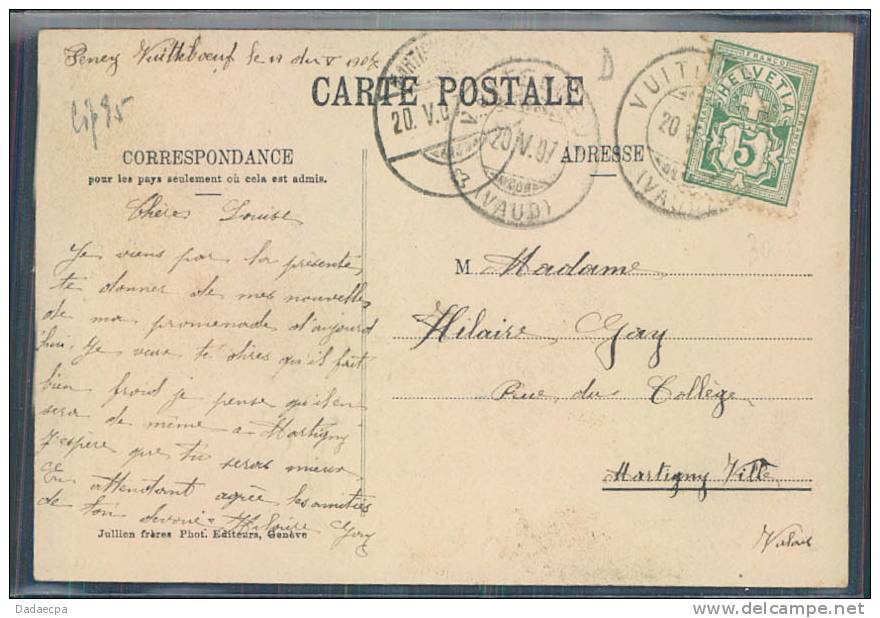 Peney Vuitteboeuf le 19 du V 1907
CARTE POSTALE
CORRESPONDANCE
pour les pays seulement où cela est admis.
ADRESSE
D
20. V. 0
20 V. 07
(VAUD)
VUIT
20
(VAUD)
FRANCO
HELVETIA
5
Chère Louise
Je viens par la présente
te donner de mes nouvelles
de ma promenade d'aujourd
'hui. Je veux te dires qu'il fait
bien froid je pense qu'il en
sera de même a Martigny
J'espère que tu seras mieux
En attendant agrée les amitiés
de ton devoué Hilaire Gay
M. Madame
Hilaire Gay
Rue du Collège
Martigny Ville
Valais
Jullien frères Phot. Editeurs, Genève
Dadaecpa
www.delcampe.net